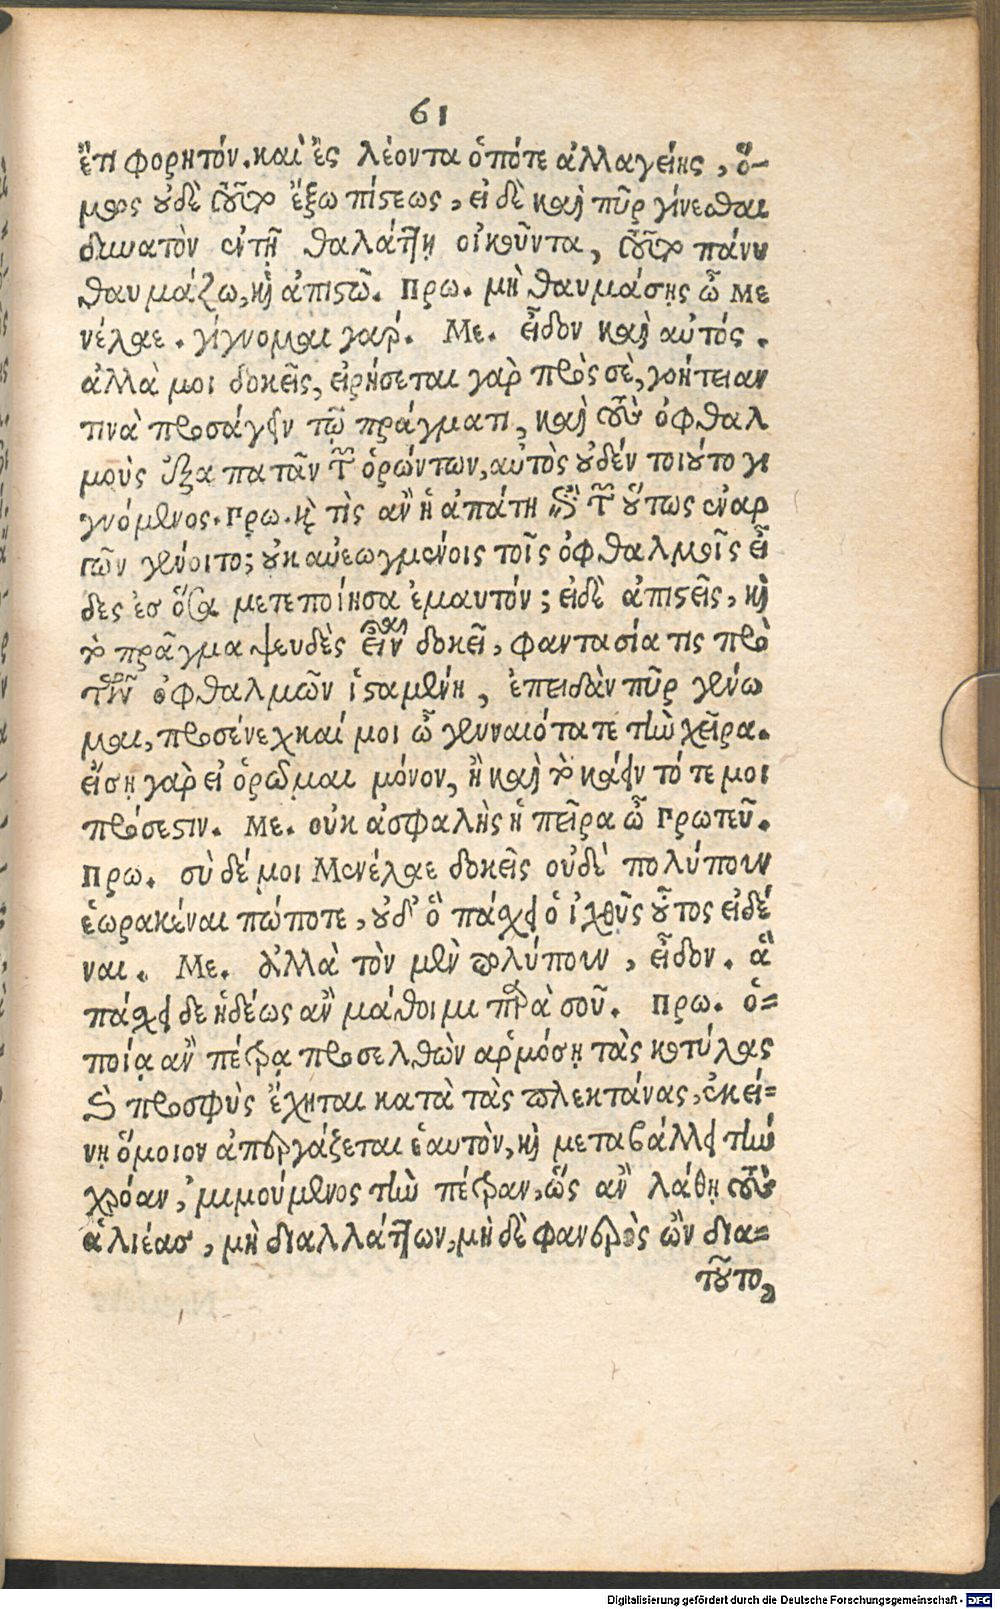 61
ἔτι φορητόν. καὶ ἐς λέοντα ὁπότε ἀλλαγείης, ὅ-
μως οὐδὲ τοῦτο ἔξω πίστεως, εἰ δὲ καὶ πῦρ γίνεσθαι
δυνατὸν ἐν τῇ θαλάττῃ οἰκοῦντα, τοῦτο πάνυ
θαυμάζω, καὶ ἀπιστῶ. Πρω. μὴ θαυμάσῃς ὦ Με
νέλαε. γίγνομαι γάρ. Με. εἶδον καὶ αὐτός.
ἀλλὰ μοι δοκεῖς, εἰρήσεται γὰρ πρὸς σὲ, γοήτειαν
τινὰ προσάγειν τῷ πράγματι, καὶ τοὺς ὀφθαλ
μοὺς ἐξαπατᾶν τῶν ὁρώντων, αὐτὸς οὐδέν τοιοῦτο γι
γνόμενος. Πρω. καὶ τὶς ἂν ἡ ἀπάτη ἐπὶ τῶν οὕτως ἐναρ
γῶν γένοιτο; οὐκ ἀνεῳγμένοις τοῖς ὀφθαλμοῖς εἶ
δες ἐσ ὅσα μετεποίησα ἐμαυτόν; εἰ δὲ ἀπιστεῖς, καὶ
τὸ πρᾶγμα ψευδὲς εἶναι δοκεῖ, φαντασία τις πρὸ
τῶν ὀφθαλμῶν ἱσταμένη, ἐπειδὰν πῦρ γένω
μαι, προσένεχκαί μοι ὦ γενναιότατε τὴν χεῖρα.
εἴσῃ γὰρ εἰ ὁρῶμαι μόνον, ἢ καὶ τὸ κάειν τότε μοι
πρόσεστιν. Με. οὐκ ἀσφαλὴς ἡ πεῖρα ὦ Πρωτεῦ.
Πρω. σὺ δέ μοι Μενέλαε δοκεῖς οὐδὲ πολύπουν
ἑωρακέναι πώποτε, οὐδ' ὃ πάσχει ὁ ἰχθῦς οὗτος εἰδέ
ναι. Με. ἀλλὰ τὸν μὲν πολύπουν, εἶδον. ἃ
πάσχει δε ἡδέως ἂν μάθοιμι παρὰ σοῦ. Πρω. ὁ-
ποίᾳ ἂν πέτρᾳ προσελθὼν ἁρμόσῃ τὰς κοτύλας
καὶ προσφὺς ἔχηται κατὰ τὰς πλεκτάνας, ἐκεί-
νῃ ὅμοιον ἀπεργάζεται ἑαυτὸν, καὶ μεταβάλλει τὴν
χρόαν, μιμούμενος τὴν πέτραν, ὡς ἂν λάθῃ τοὺς
ἁλιέας, μὴ διαλλάττων, μὴ δὲ φανερὸς ὢν δια-
τοῦτο,
Digitalisierung gefördert durch die Deutsche Forschungsgemeinschaft - DFG